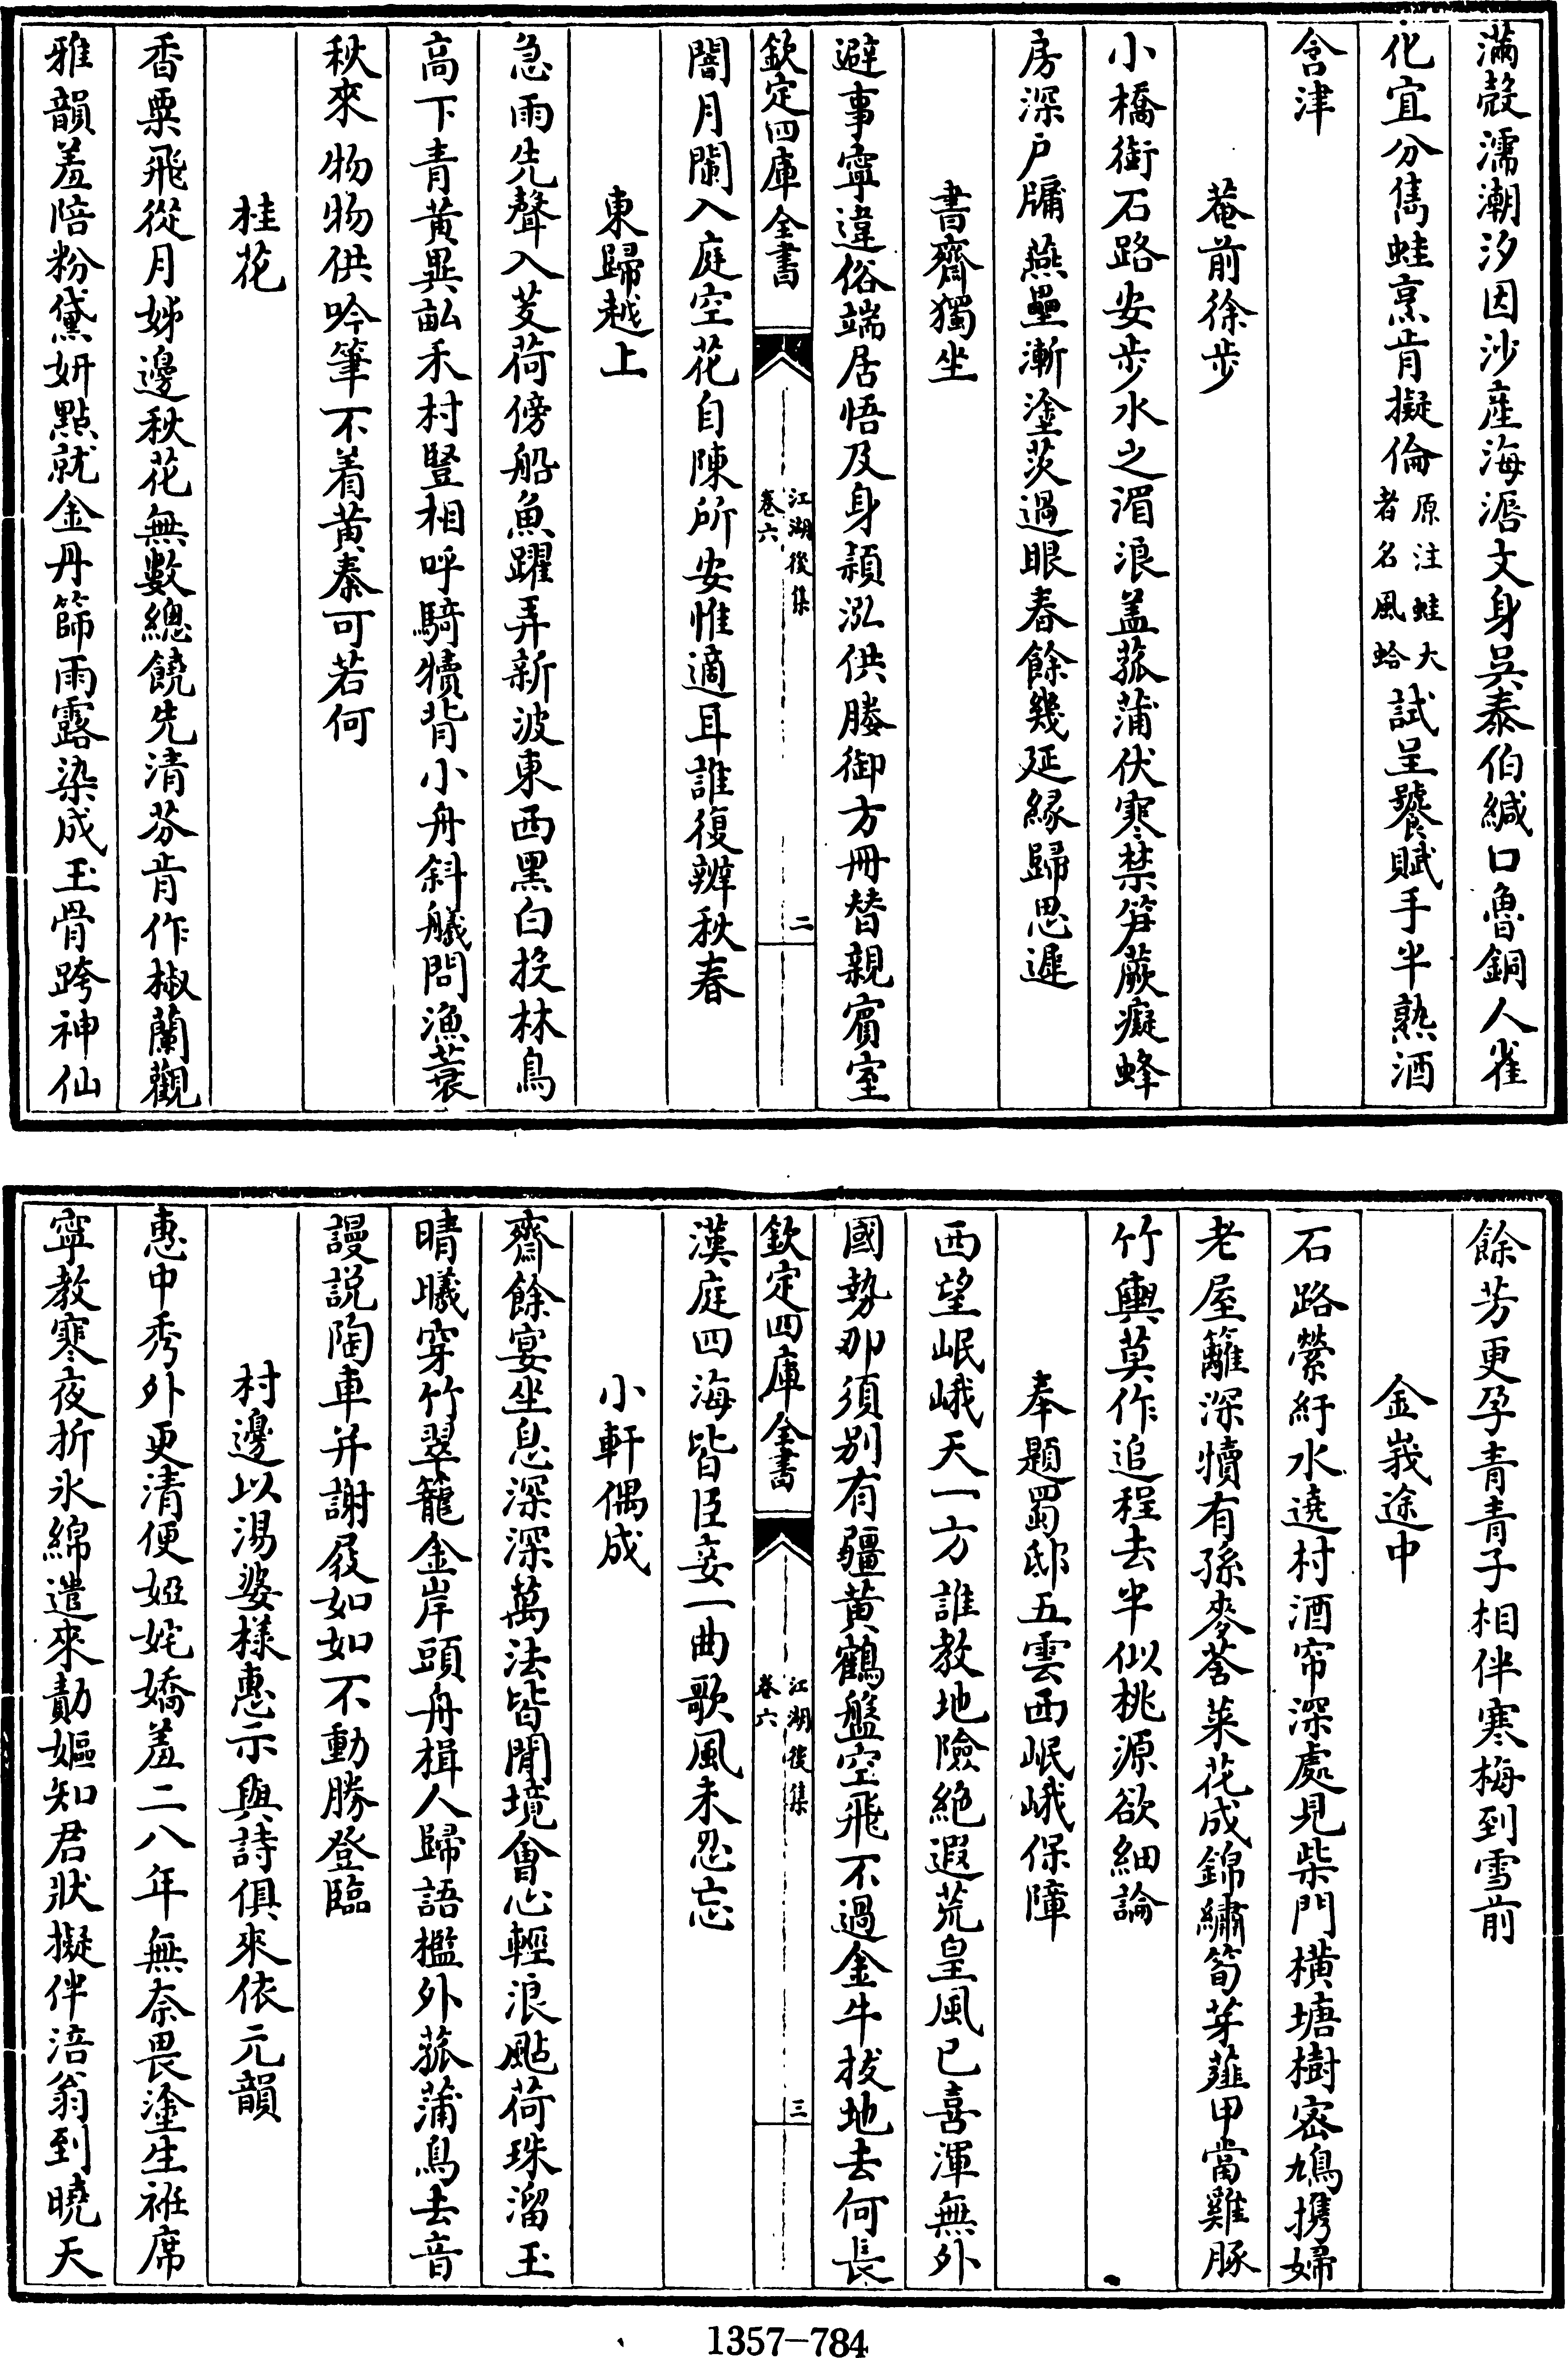 滿殼濡潮汐因沙産海漘文身吳泰伯緘口魯銅人雀
化宜分雋蛙烹肯擬倫原注蛙大者名風蛤試呈饕賦手半熟酒
含津
菴前徐步
小橋街石路安步水之湄浪蓋菰蒲伏寒禁笋蕨癡蜂
房深戶牖燕壘漸塗茨過眼春餘幾延緣歸思遲
書齋獨坐
避事寧違俗端居悟及身潁泓供媵御方冊替親賓室
欽定四庫全書
江湖後集
卷六
二
闇月闌入庭空花自陳所安惟適耳誰復辨秋春
東歸越上
急雨先聲入芰荷傍船魚躍弄新波東西黑白投林鳥
高下青黃異畝禾村豎相呼騎犢背小舟斜艤問漁蓑
秋來物物供吟筆不着黃泰可若何
桂花
香粟飛從月姊邊秋花無數總饒先清芬肯作椒蘭觀
雅韻羞陪粉黛妍點就金丹篩雨露染成玉骨跨神仙
餘芳更孕青青子相伴寒梅到雪前
金峩途中
石路縈紆水遶村酒帘深處見柴門橫塘樹密鳩攜婦
老屋籬深犢有孫麥荅菜花成錦繡筍芽薤甲當雞豚
竹輿莫作追程去半似桃源欲細論
奉題蜀邸五雲西岷峨保障
西望岷峨天一方誰教地險絶遐荒皇風已喜渾無外
國勢那須別有疆黃鶴盤空飛不過金牛拔地去何長
欽定四庫全書
江湖後集
卷六
三
漢庭四海皆臣妾一曲歌風未忍忘
小軒偶成
齋餘宴坐息深深萬法皆閒境會心輕浪颭荷珠溜玉
晴曦穿竹翠籠金岸頭舟楫人歸語檻外菰蒲鳥去音
謾説陶車并謝屐如如不動勝登臨
村邊以湯婆樣惠示與詩俱來依元韻
惠中秀外更清便婭姹嬌羞二八年無奈畏塗生袵席
寧教寒夜折氷綿遣來勣嫗知君狀擬伴涪翁到曉天
1357-784